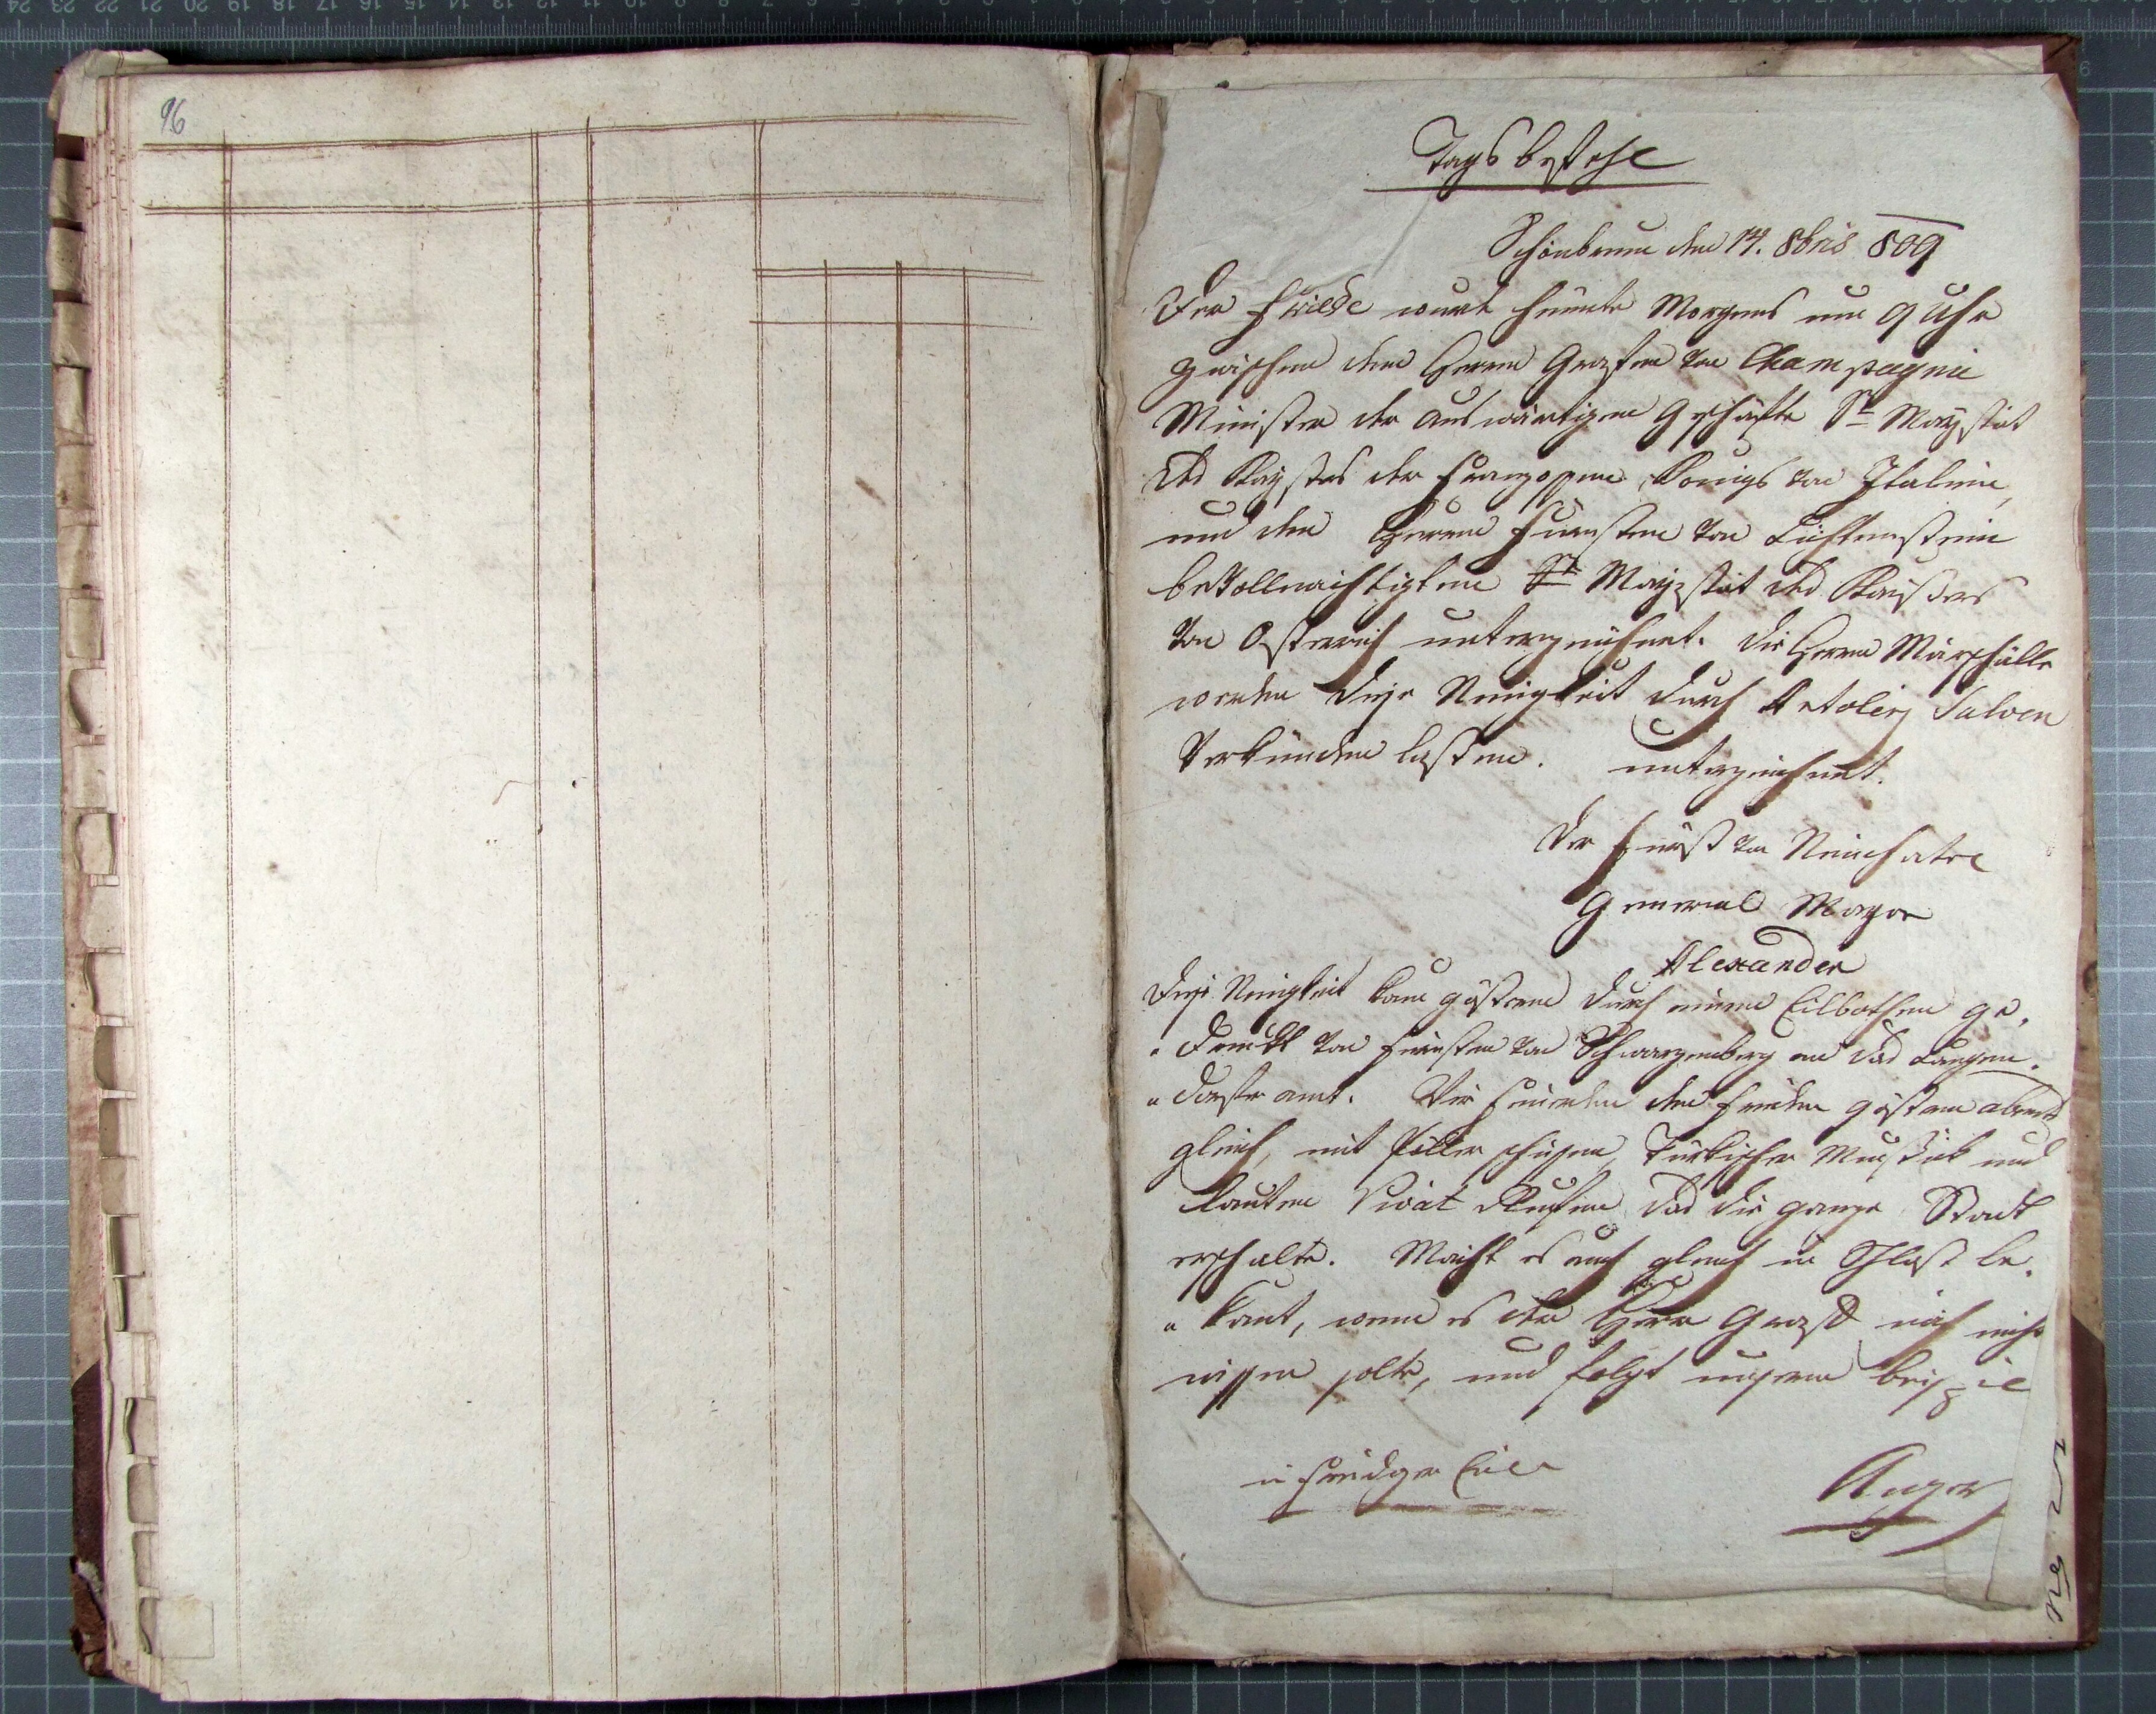 96
Tagsbefehl
Schönbrunn den 14. 8bris 809
Der Friede wurt heunte Morgens um 9 Uhr
zwischen dem Herrn Grafen von Champagnie
Minister der auswärtigen Geschäfte Sr Mayestät
des Kaysers der Franzossen, Königs von Italien,
und den Herrn Fürsten von Lichtenstein
bevollmächtigten Sr Mayestät des Kaisers
von Östereich unterzeichnet. Die Herrn Marschälle
werden diese Neuigkeit durch Artolerj Salven
verkünden lassen. unterzeichnet.
Der Fürst von Neuchatel
General Major
Alexander
Diese Neuigkeit kam gestern durch einen Eilbothen ge-
druckt von Fürsten von Schwarzenberg an das
amt. Wir feuerten den Frieden gestern abend
gleich, mit Pöller schüssen, Türkischer Mussick und
lauten Vivat Ruffen das die ganze Stadt
erschalte. Macht es auch gleich in Schloß be-
kant, wenn es der Herr Graff noch nicht
wissen solte, und folgt unsern beispiel
in freudger Eile